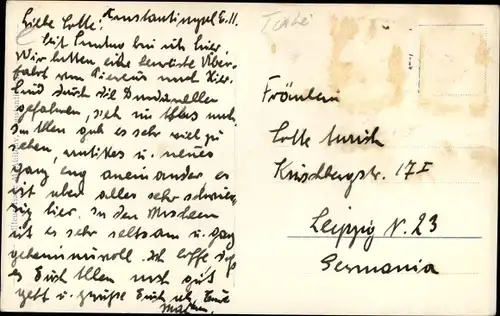 Konstantinopel 6.11.
Liebe Lotte!
Seit Sonntag bin ich hier.
Wir hatten eine bewegte Über-
fahrt von Piräus nach hier.
Sind durch die Dardanellen
gefahren,
In Athen gab es sehr viel zu
sehen, antikes u. neues
ganz eng aneinander es
ist aber alles sehr schmut-
zig hier. In den Moscheen
ist es sehr seltsam u. ganz
geheimnisvoll. Ich hoffe daß
es Euch allen noch gut
geht u. grüße Euch als Eure
Türkei
Fräulein
Lotte
Kirschbergstr. 17 I
Leipzig N. 23
Germania